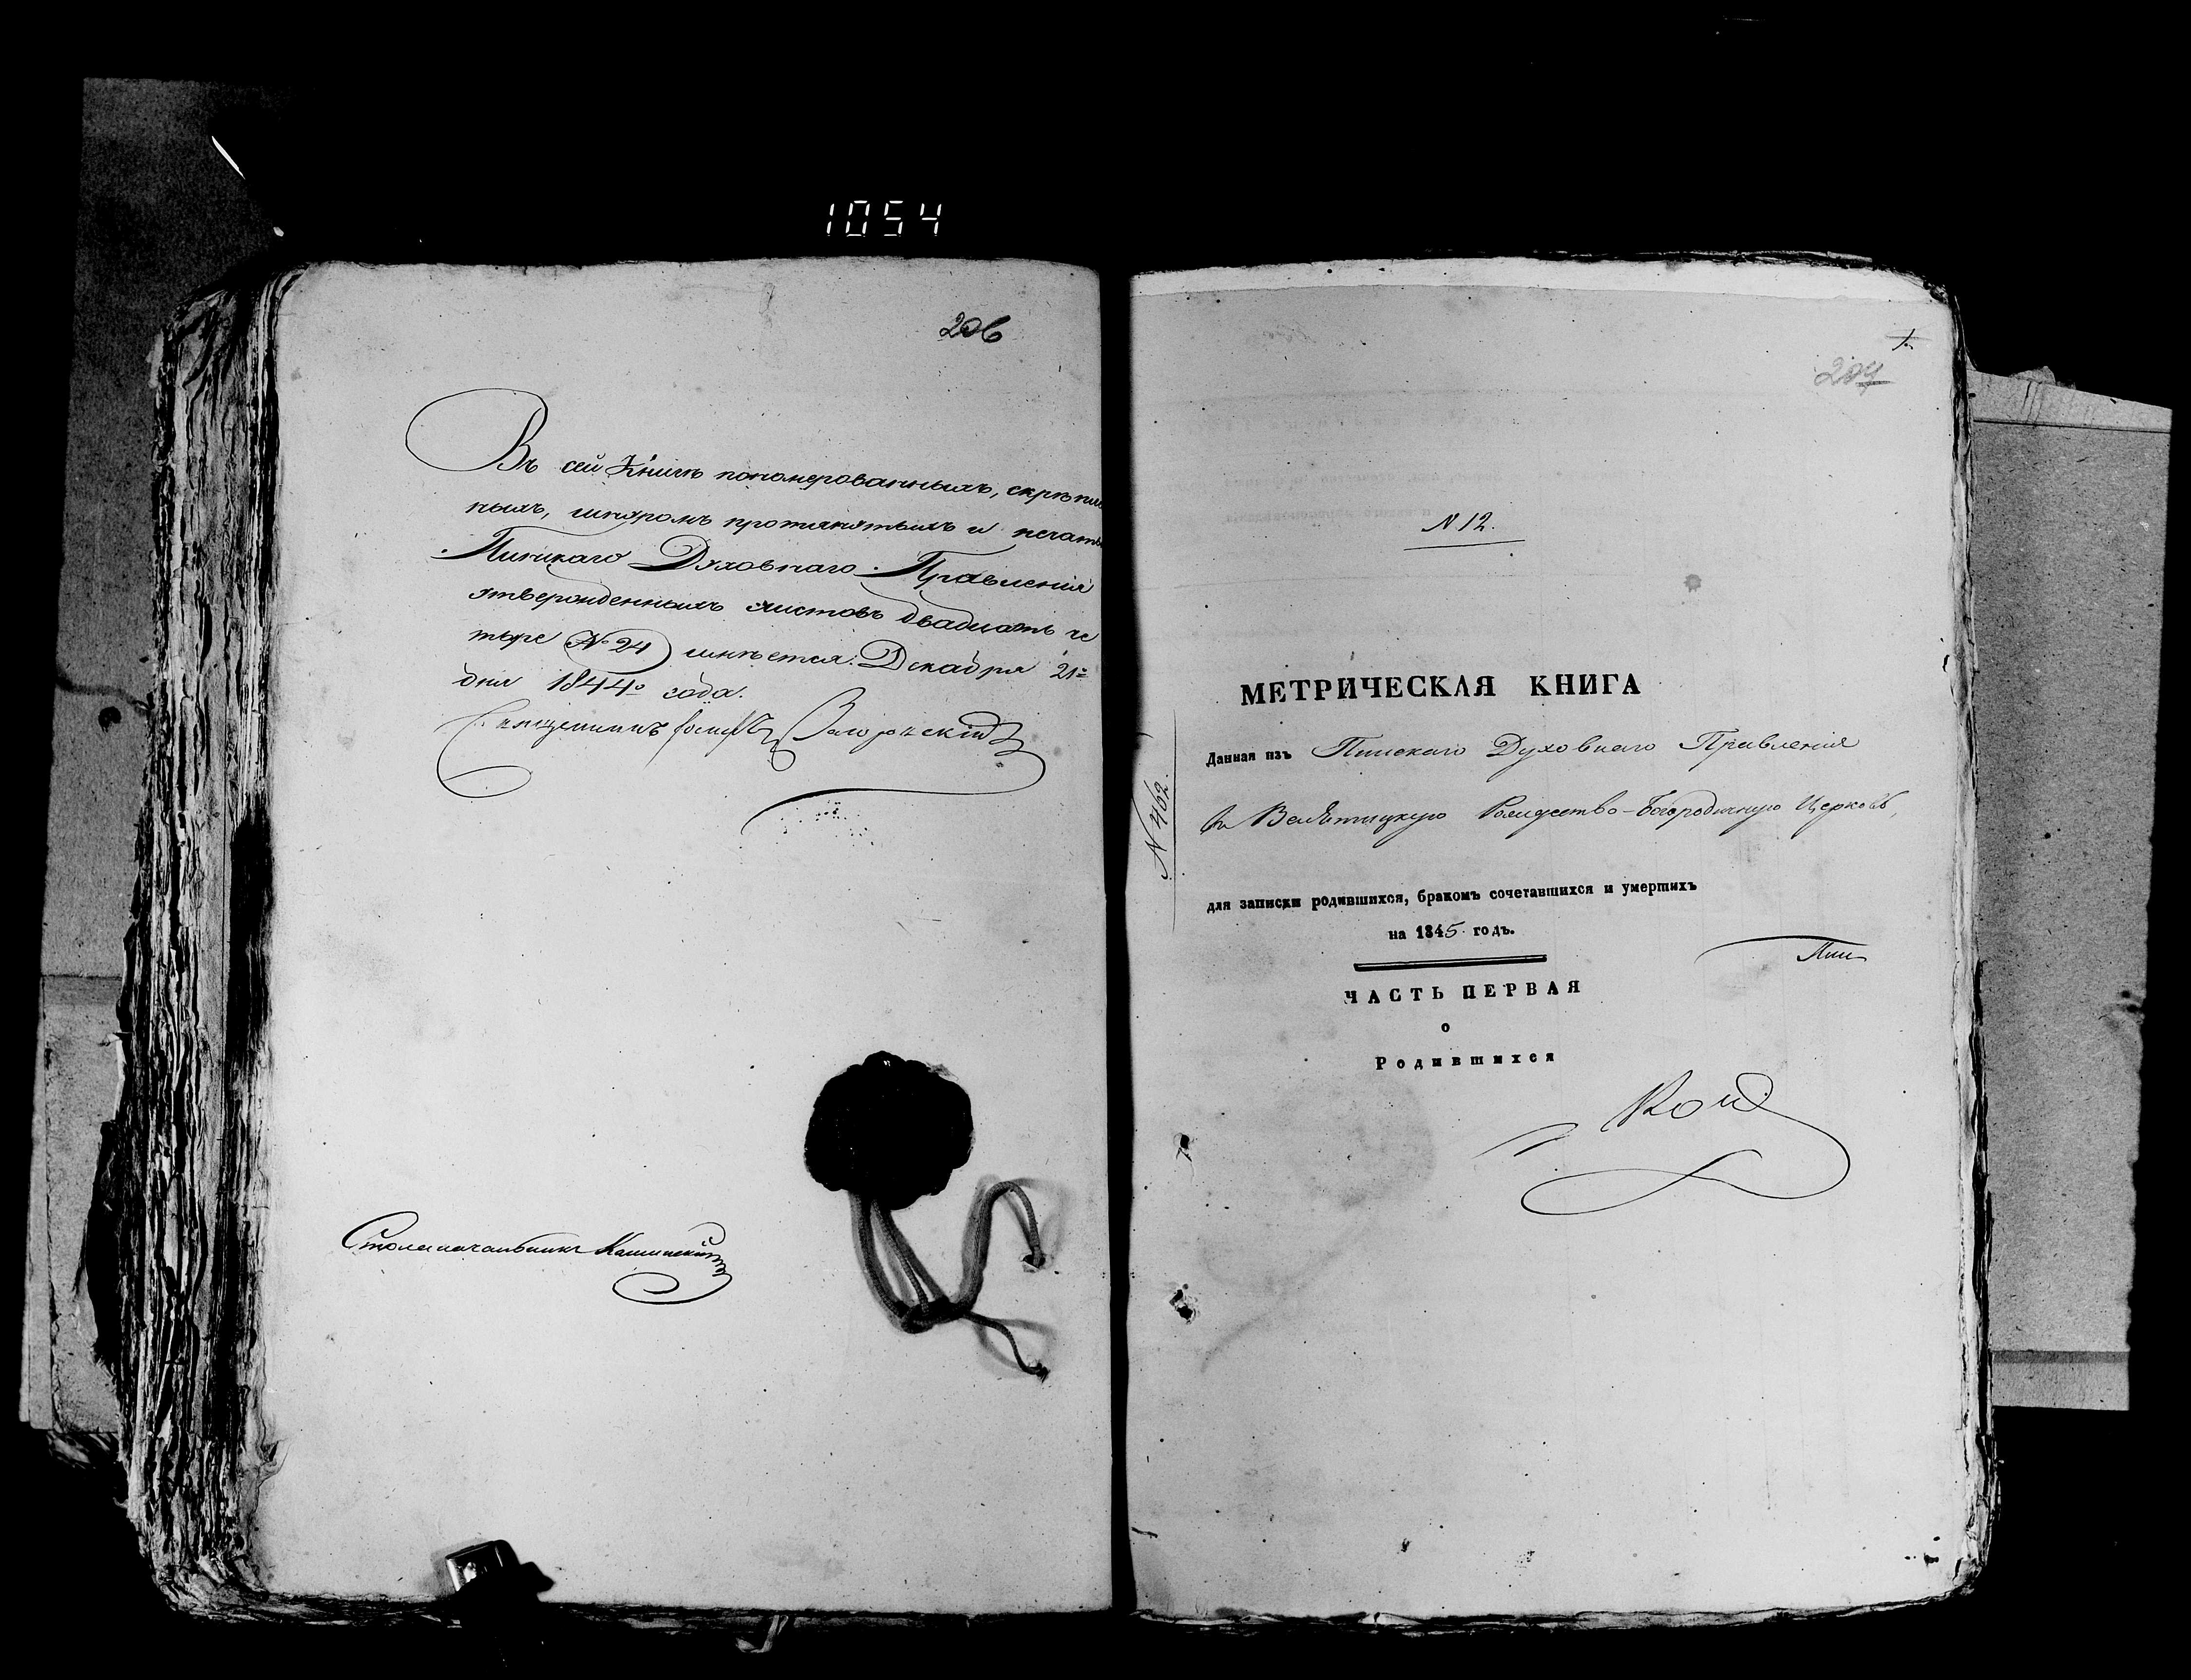 1054
206
Въ сей Книгѣ пономерованныхъ, скрѣплен
ныхъ, шнуромъ протянутыхъ и печатью
Пинскаго Духовнаго Правленія
утвержденныхъ листовъ двадцать че
тыре № 24 имѣется. Декабря 21=
дня 1844го года.
Священникъ
Столоначальникъ
1.
207
N 12.
МЕТРИЧЕСКАЯ КНИГА
Данная изъ Пинскаго Духовнаго Правленія
въ Велятицкую Рождество-Богородичную Церковь,
N 402.
для записки родившихся, бракомъ сочетавшихся и умершихъ
на 1845 годъ.
Пин
ЧАСТЬ ПЕРВАЯ
о
Родившихся